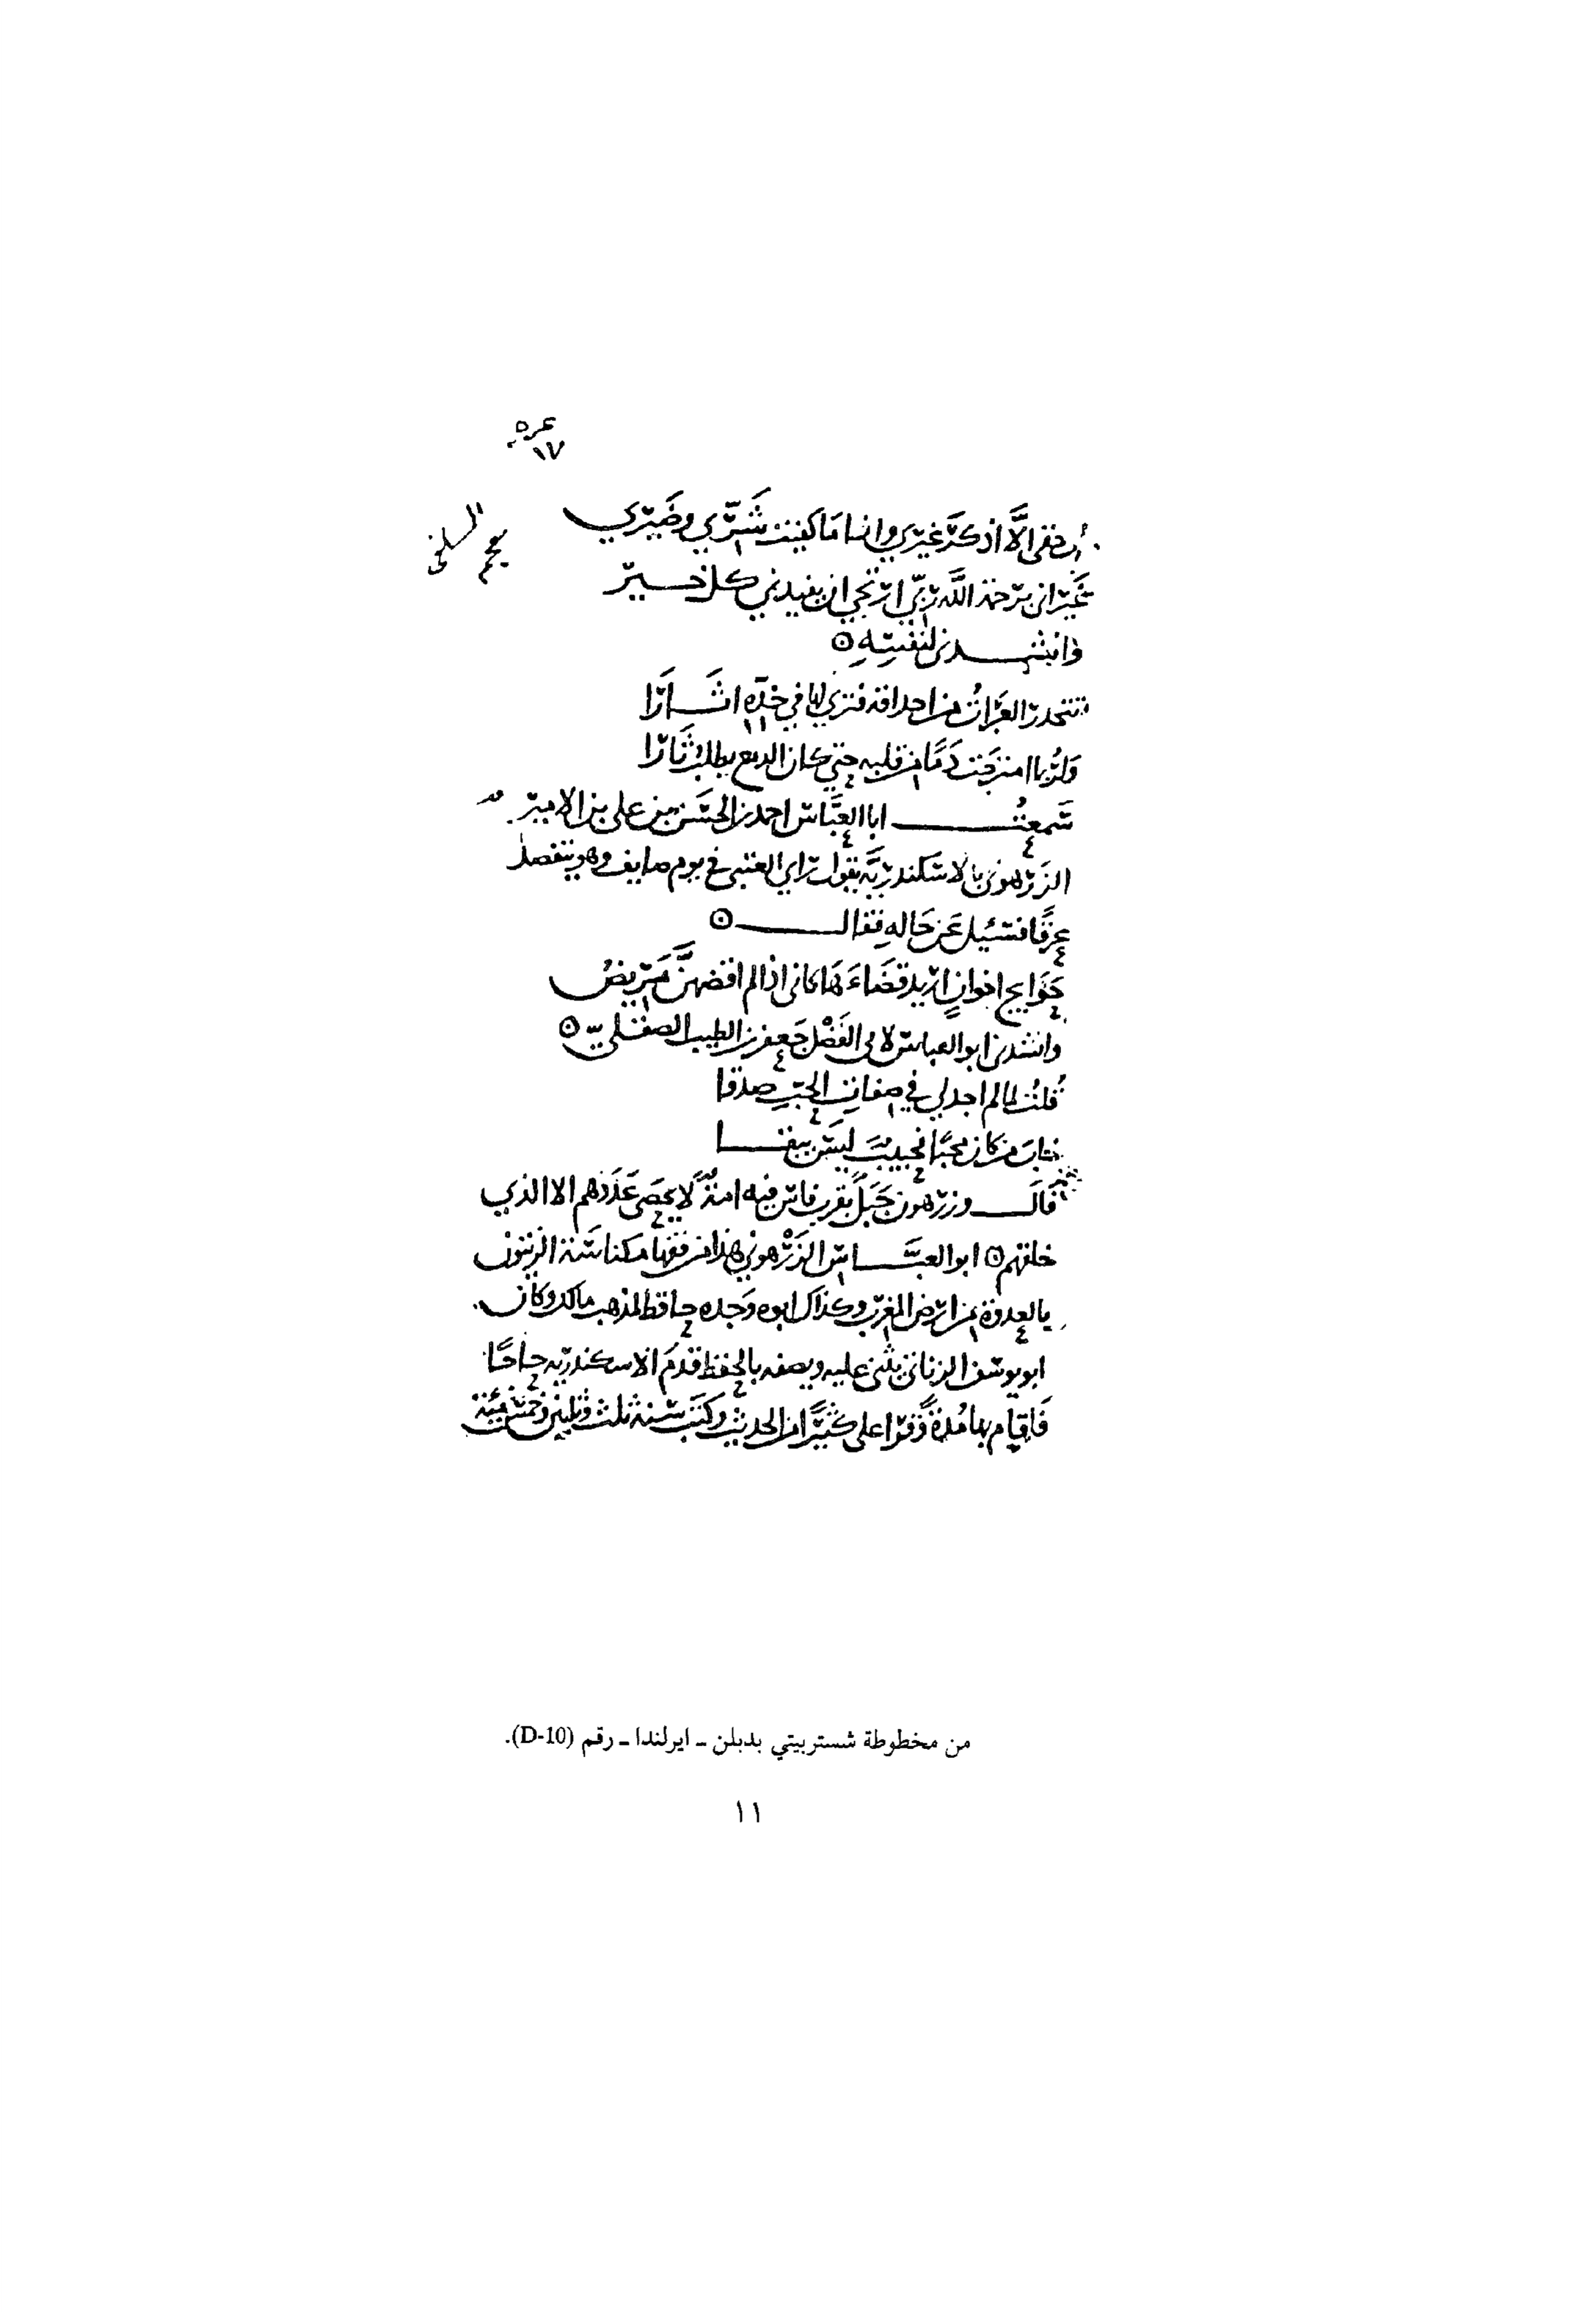 ١٧
معجم السلفي
الا اذكر غيري وانسا مَا كَينت شَرِّي وضَيْري
غَيرَ اني برحمَة اللَّه رَبِّي ارتجي ان يفيدني كل خــير
وانشــــدني لنفسِهِ ۞
تتحدر العبَراتُ من احداقه فترى لها في خدِّهِ اثَــارَا
وَلرُبما امتزجَت دَمًا من قلبه حتي كان الدمع يطلب ثَارَا
سَمعتُــــــــ ابا العبَّاس احمد بن الحسَن بن علي بن الامير
الزَرْهوني بالاسكندريَّة يقول راي العتبي في يوم صايف وهو يتفصد
عرقًا فسئيل عَن حَالهِ فقالـــــــ ۞
حَوَايج اخوانٍ اريد قضَاءَهَا كاني اذا لم اقضهنَّ مَريضُ
وانشدني ابو العباس لابي الفَضْل جَعفر بن الطيب الصقليّ ۞
قلتُ لما لم اجد لي في صفات الحبّ صدقا
مَن كان محبًا لحبيبٍ ليسَ يبقــــا
قَالَـــــ وزرهون جَبَل بقرب فاس فيه امة لا يحصَى عَدَدهم الا الذي
خلقهم ۞ ابو العبَّــــاس الزَرْهوني هذا من فقها مكناسَة الزيتون
بالعدوة من ارض المغرب وكذاك ابوه وَجده حافظ لمذهب مالك وكان
ابو يوسف الزناتي يثني عليه ويصفه بالحفظ قدمَ الاسكندرية حاجًا
فَاقام بها مُدةً وَقرا علي كثيرًا من الحديث وكتب سَنة ثلث وثلثين وخمس مئة
من مخطوطة شستربيتي بدبلن ـ ايرلندا ـ رقم (D-10).
١١